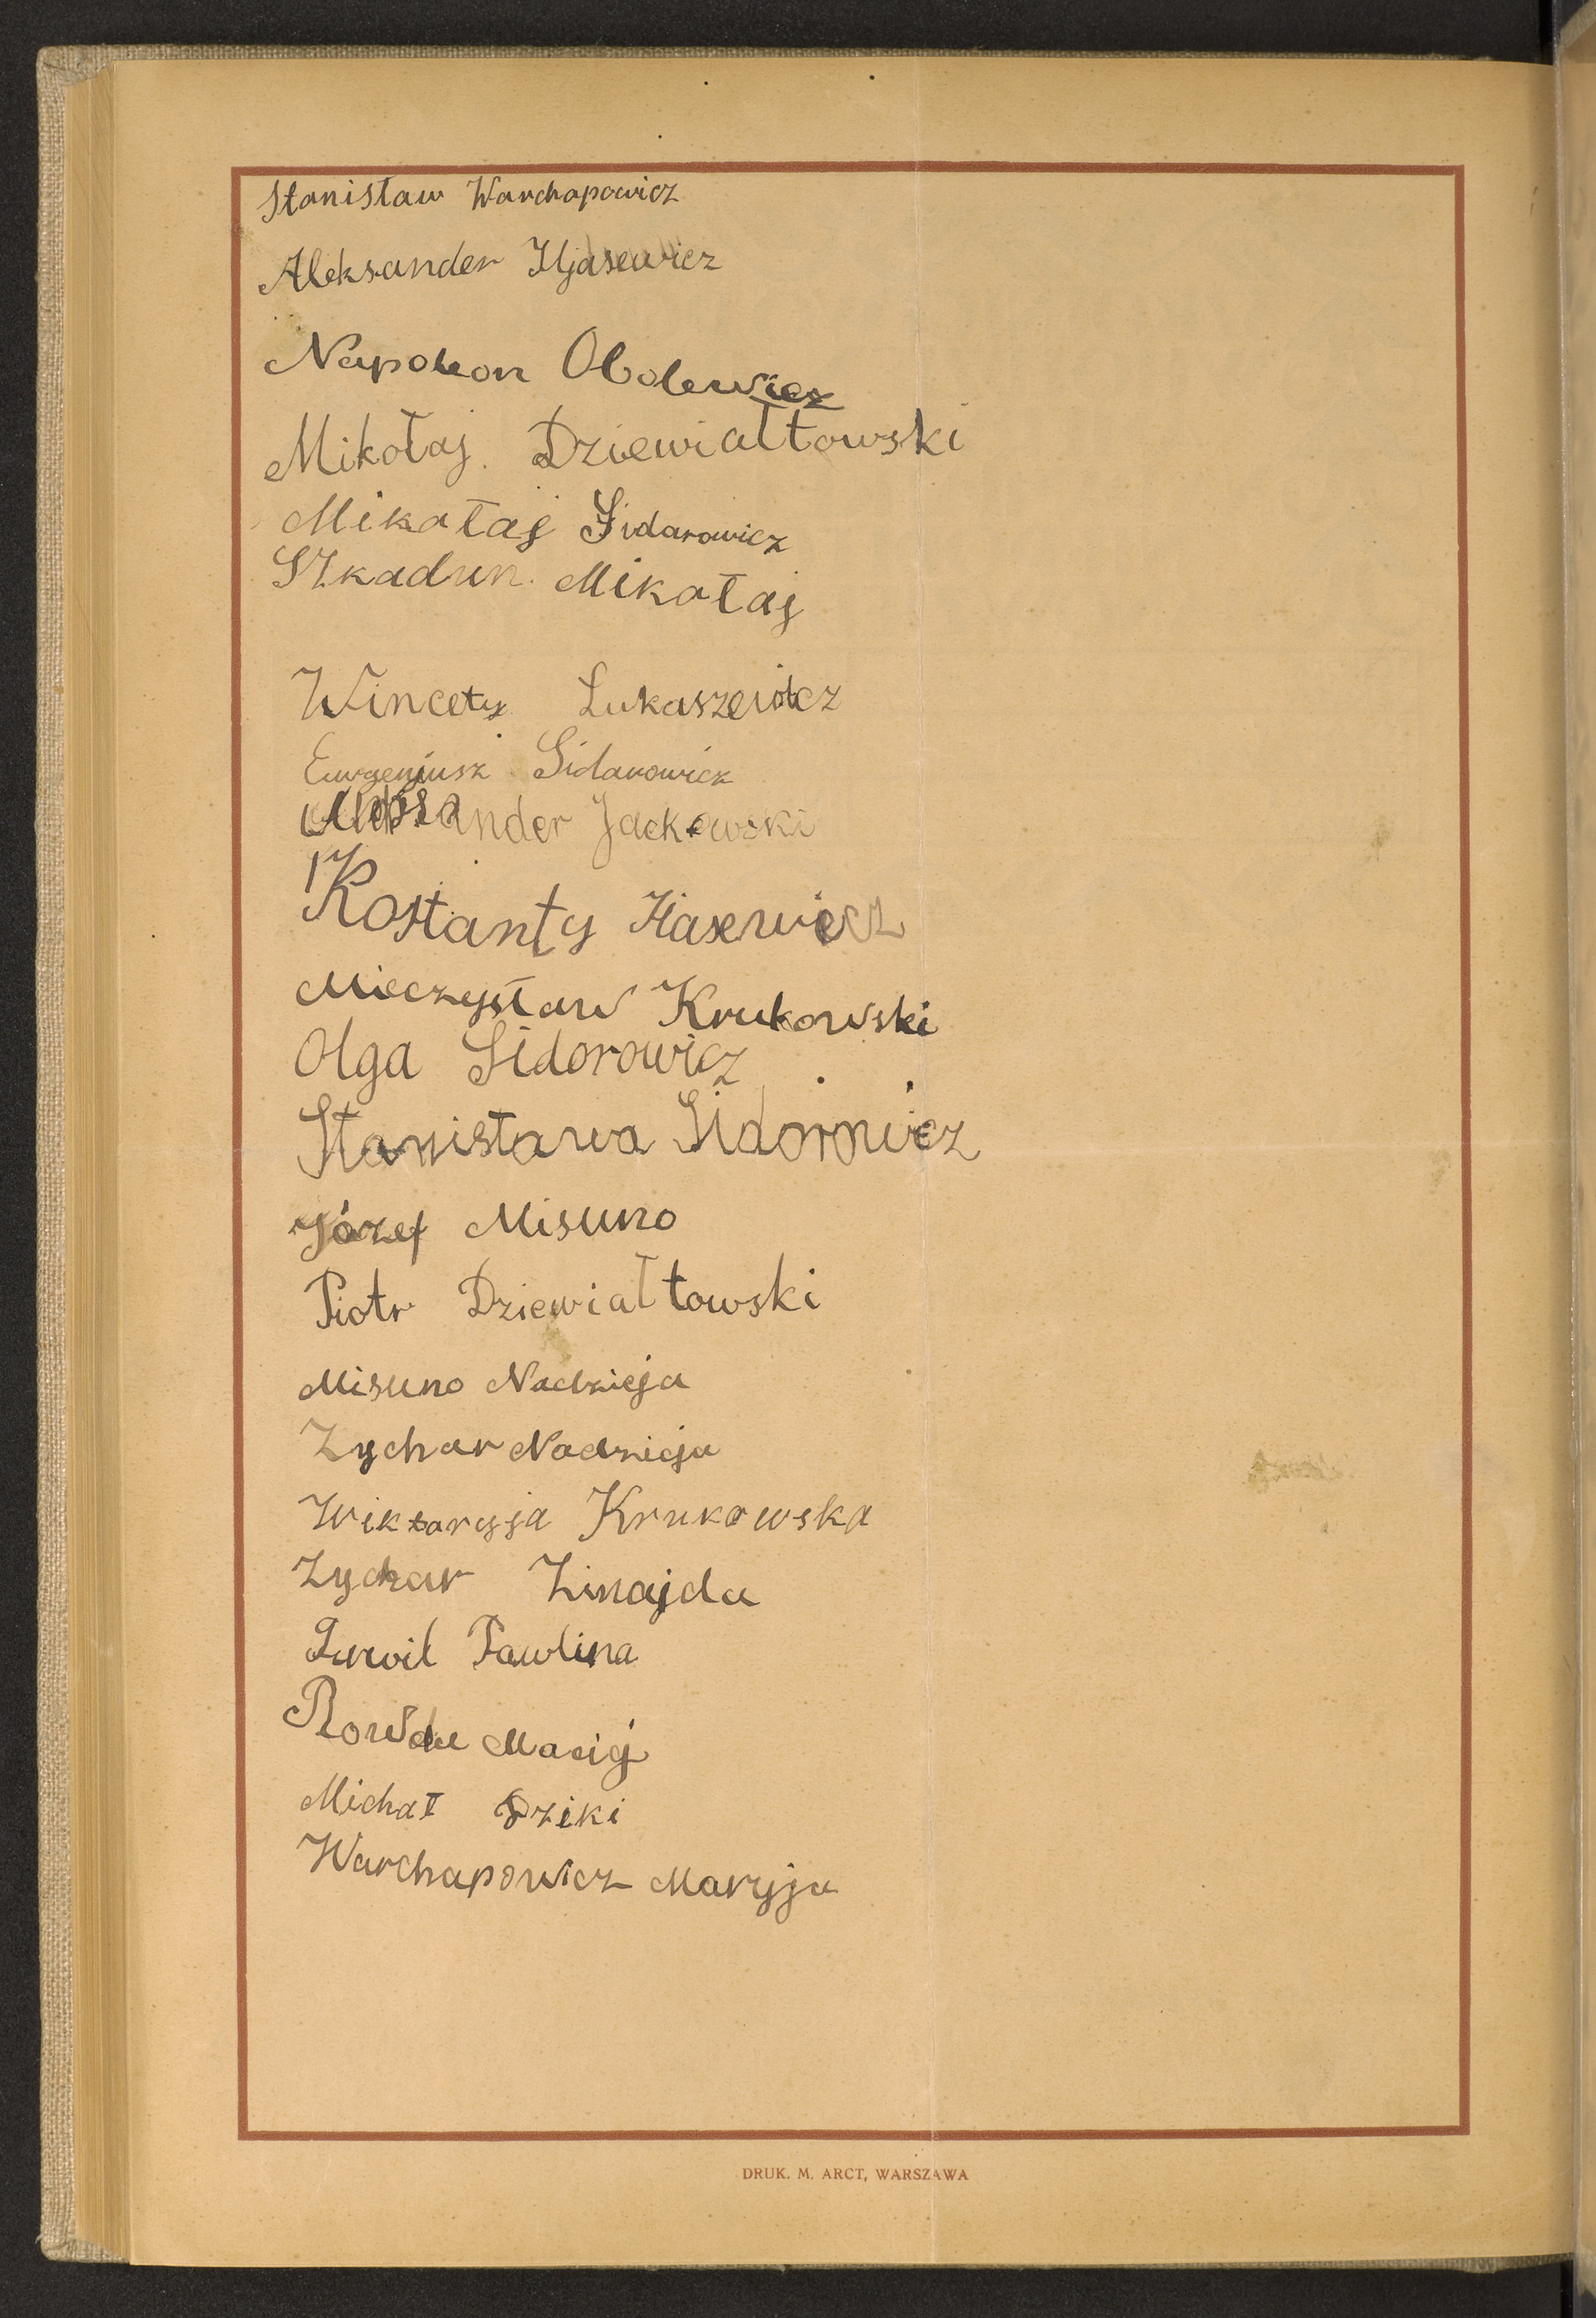 Stanisław Warchapowicz
Aleksander Iljasewicz
Napoleon Obolewicz
Mikołaj Dziewiałtowski
Mikałaj Sidarowicz
Szkadun. Mikałaj
Wincety Łukaszewicz
Euwgenjusz Sidarowicz
Aleksander Jackowski
Kostanty Iliasewicz
Mieczysław Krukowski
Olga Sidorowicz
Stanisława Sidorowicz
Józef Misuno
Piotr Dziewiałtowski
Misuno Nadzieja
Zychar Nadzieja
Wiktaryja Krukowska
Zychar Zinajda
Pawlina
Maciej
Michał Dziki
Warchapowicz Maryja
DRUK. M. ARCT, WARSZAWA